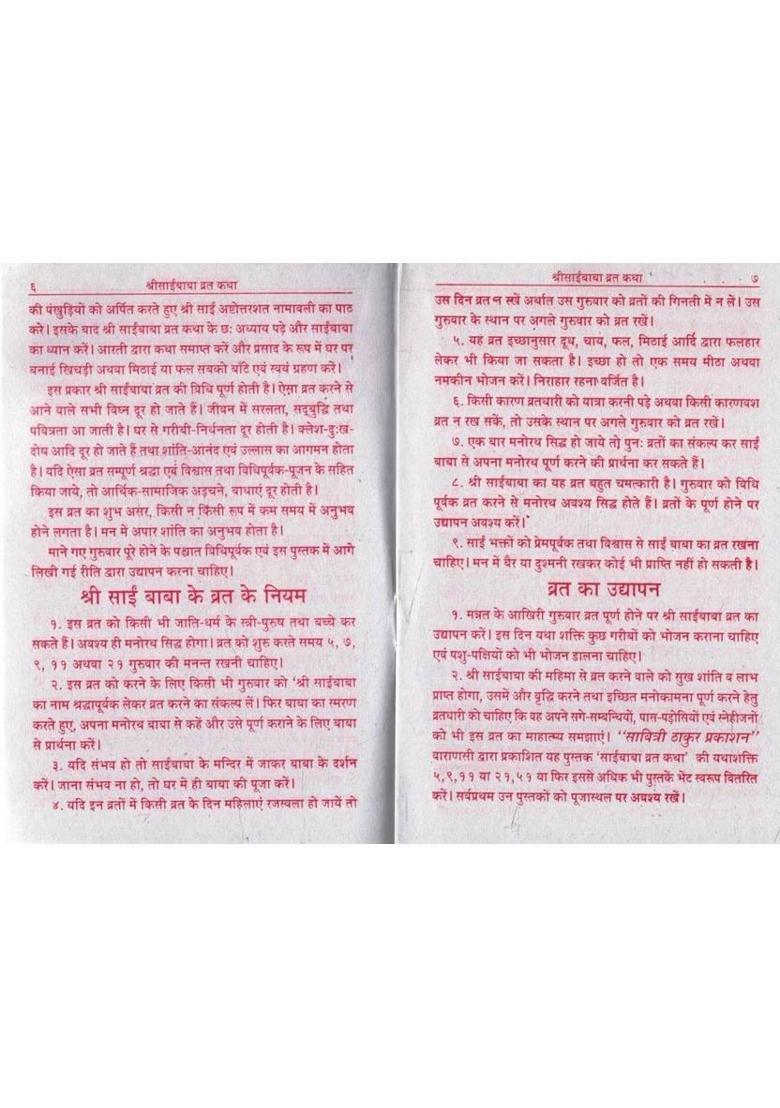 ६ श्रीसाईबाबा व्रत कथा
की पंखुड़ियों को अर्पित करते हुए श्री साईं अष्टोत्तरशत नामावली का पाठ
करे। इसके बाद श्री साईंबाबा व्रत कथा के छः अध्याय पढ़े और साईंबाबा
का ध्यान करें। आरती द्वारा कथा समाप्त करें और प्रसाद के रूप में घर पर
बनाई खिचड़ी अथवा मिठाई या फल सबको बाँटे एवं स्वयं ग्रहण करें।
इस प्रकार श्री साईंबाबा व्रत की विधि पूर्ण होती है। ऐसा व्रत करने से
आने वाले सभी विघ्न दूर हो जाते हैं। जीवन में सरलता, सद्बुद्धि तथा
पवित्रता आ जाती है। घर से गरीबी-निर्धनता दूर होती है। क्लेश-दुःख-
दोष आदि दूर हो जाते हैं तथा शांति-आनंद एवं उल्लास का आगमन होता
है। यदि ऐसा व्रत सम्पूर्ण श्रद्धा एवं विश्वास तथा विधिपूर्वक-पूजन के सहित
किया जाये, तो आर्थिक-सामाजिक अड़चने, बाधाएं दूर होती है।
इस व्रत का शुभ असर, किसी न किसी रूप में कम समय में अनुभव
होने लगता है। मन में अपार शांति का अनुभव होता है।
माने गए गुरुवार पूरे होने के पश्चात विधिपूर्वक एवं इस पुस्तक में आगे
लिखी गई रीति द्वारा उद्यापन करना चाहिए।
श्री साईं बाबा के व्रत के नियम
१. इस व्रत को किसी भी जाति-धर्म के स्त्री-पुरुष तथा बच्चे कर
सकते हैं। अवश्य ही मनोरथ सिद्ध होगा। व्रत को शुरु करते समय ५, ७,
९, ११ अथवा २१ गुरुवार की मनन्त रखनी चाहिए।
२. इस व्रत को करने के लिए किसी भी गुरुवार को 'श्री साईंबाबा
का नाम श्रद्धापूर्वक लेकर व्रत करने का संकल्प लें। फिर बाबा का स्मरण
करते हुए, अपना मनोरथ बाबा से कहें और उसे पूर्ण कराने के लिए बाबा
से प्रार्थना करें।
३. यदि संभव हो तो साईंबाबा के मन्दिर में जाकर बाबा के दर्शन
करें। जाना संभव ना हो, तो घर में ही बाबा की पूजा करें।
४. यदि इन व्रतों में किसी व्रत के दिन महिलाएं रजस्वला हो जायें तो
श्रीसाईबाबा व्रत कथा ७
उस दिन व्रत न रखें अर्थात उस गुरुवार को व्रतों की गिनती में न लें। उस
गुरुवार के स्थान पर अगले गुरुवार को व्रत रखें।
५. यह व्रत इच्छानुसार दूध, चाय, फल, मिठाई आदि द्वारा फलहार
लेकर भी किया जा सकता है। इच्छा हो तो एक समय मीठा अथवा
नमकीन भोजन करें। निराहार रहना वर्जित है।
६. किसी कारण व्रतधारी को यात्रा करनी पड़े अथवा किसी कारणयश
व्रत न रख सकें, तो उसके स्थान पर अगले गुरुवार को व्रत रखें।
७. एक बार मनोरथ सिद्ध हो जाये तो पुनः व्रतों का संकल्प कर साईं
बाबा से अपना मनोरथ पूर्ण करने की प्रार्थना कर सकते हैं।
८. श्री साईंबाबा का यह व्रत बहुत चमत्कारी है। गुरुवार को विधि
पूर्वक व्रत करने से मनोरथ अवश्य सिद्ध होते हैं। व्रतों के पूर्ण होने पर
उद्यापन अवश्य करें।
९. साईं भक्तों को प्रेमपूर्वक तथा विश्वास से साईं बाबा का व्रत रखना
चाहिए। मन में बैर या दुश्मनी रखकर कोई भी प्राप्ति नहीं हो सकती है।
व्रत का उद्यापन
१. मन्नत के आखिरी गुरुवार व्रत पूर्ण होने पर श्री साईंबाबा व्रत का
उद्यापन करें। इस दिन यथा शक्ति कुछ गरीबों को भोजन कराना चाहिए
एवं पशु-पक्षियों को भी भोजन डालना चाहिए।
२. श्री साईंबाबा की महिमा से व्रत करने वाले को सुख शांति व लाभ
प्राप्त होगा, उसमें और वृद्धि करने तथा इच्छित मनोकामना पूर्ण करने हेतु
व्रतधारी को चाहिए कि वह अपने सगे-सम्बन्धियों, पास-पड़ोसियों एवं स्नेहीजनों
को भी इस व्रत का माहात्म्य समझाएं। "सावित्री ठाकुर प्रकाशन"
वाराणसी द्वारा प्रकाशित यह पुस्तक 'साईंबाबा व्रत कथा' की यथाशक्ति
५,९,११ या २१,५१ या फिर इससे अधिक भी पुस्तकें भेंट स्वरूप वितरित
करें। सर्वप्रथम उन पुस्तकों को पूजास्थल पर अवश्य रखें।